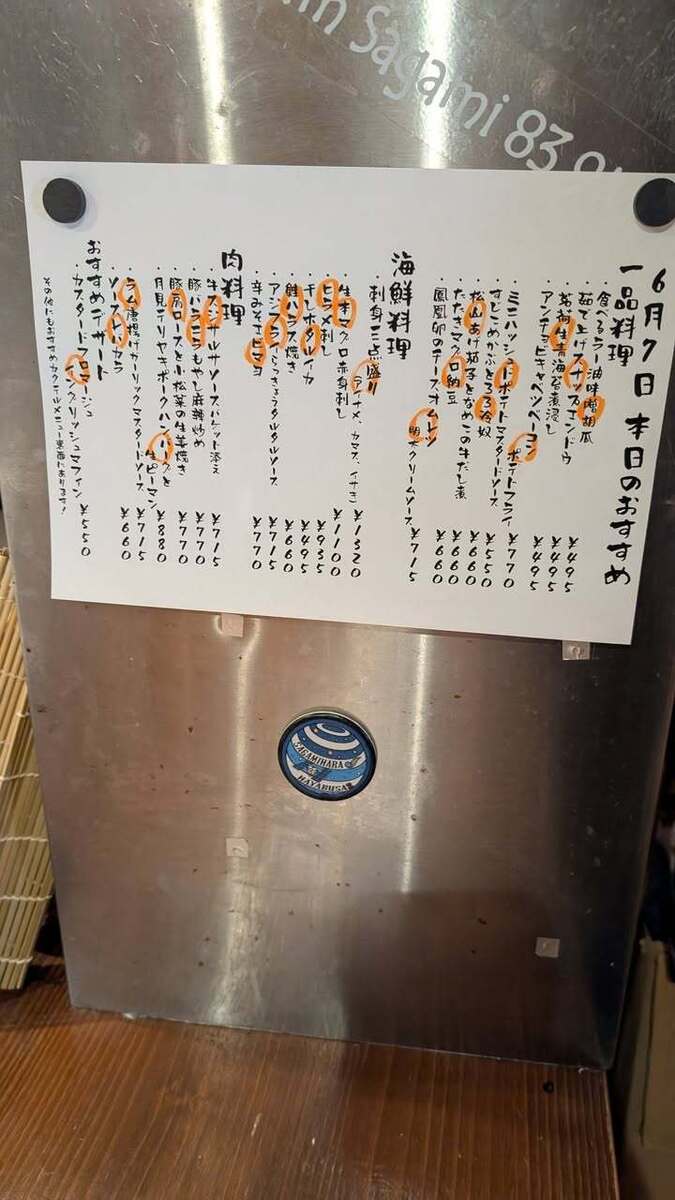 in Sagami 83.9
6月7日 本日のおすすめ
一品料理
・食べるラー油味噌胡瓜 ¥495
・茹で上げスナップエンドウ ¥495
・若布生青海苔煮浸し
・アンチョビキャベツベーコン ¥495
・ミニハッシュドポテトマスタードソース ポテトフライ ¥770
・すじこめかぶとろろ冷奴 ¥550
・松山あげ茄子となめこの牛だし煮 ¥660
・たたきマグロ納豆 ¥660
・鳳凰卵のチーズオムレツ ¥660
明太クリームソース ¥715
海鮮料理
・刺身三点盛り アイナメ、カマス、イサキ ¥1320
・生本マグロ赤身刺し ¥1100
・ヒラメ刺し ¥935
・干しホタルイカ ¥495
・鮭ハラス焼き ¥660
・アジフライらっきょうタルタルソース ¥715
・辛みそエビマヨ ¥770
肉料理
・牛スジサルサソースバゲット添え ¥715
・豚バラもやし麻辣炒め ¥770
・豚肩ロースと小松菜の生姜焼き ¥770
・月見テリヤキポークハンバーグと生ピーマン ¥880
・ラム唐揚げガーリックマスタードソース ¥715
・ソフトイカカラ ¥660
おすすめデザート
・カスタードフロマージュ
イングリッシュマフィン ¥550
その他にもおすすめカクテルメニュー裏面にあります！
SAGAMIHARA
HAYABUSA